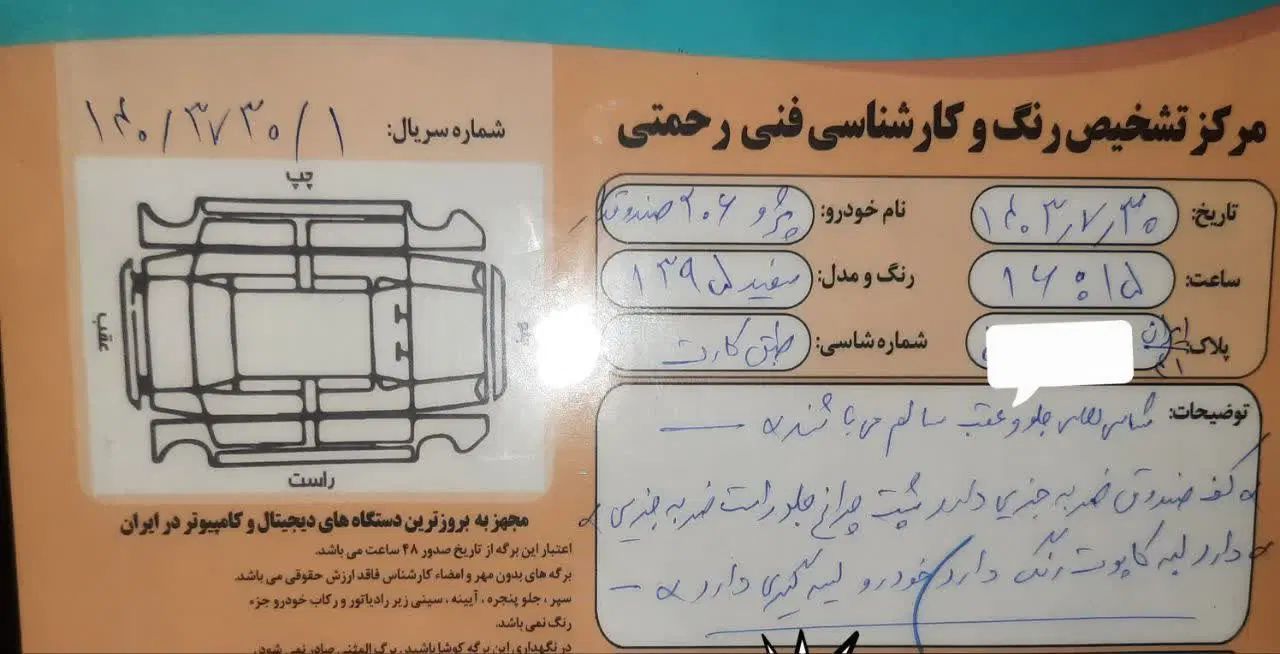 مرکز تشخیص رنگ و کارشناسی فنی رحمتی
شماره سریال: ۱۴۰/۳۷۳۰/۱
تاریخ: ۱۴۰۳٫۷٫۳۰
نام خودرو: پژو ۲۰۶ صندوقدار
ساعت: ۱۶:۱۵
رنگ و مدل: سفید ۱۳۹۵
پلاک: ایران
شماره شاسی: طبق کارت
توضیحات: شاسی های جلو و عقب سالم می باشند
کف صندوق ضربه جزیی دارد پشت چراغ جلو راست ضربه جزیی
دارد لبه کاپوت رنگ دارد خودرو لیسه گیری دارد
چپ
عقب
جلو
راست
مجهز به بروزترین دستگاه های دیجیتال و کامپیوتر در ایران
اعتبار این برگه از تاریخ صدور ۴۸ ساعت می باشد.
برگه های بدون مهر و امضاء کارشناس فاقد ارزش حقوقی می باشد.
سپر، جلو پنجره، آیینه، سینی زیر رادیاتور و رکاب خودرو جزء
رنگ نمی باشد.
در نگهداری این برگه کوشا باشید. برگ المثنی صادر نمی شود.